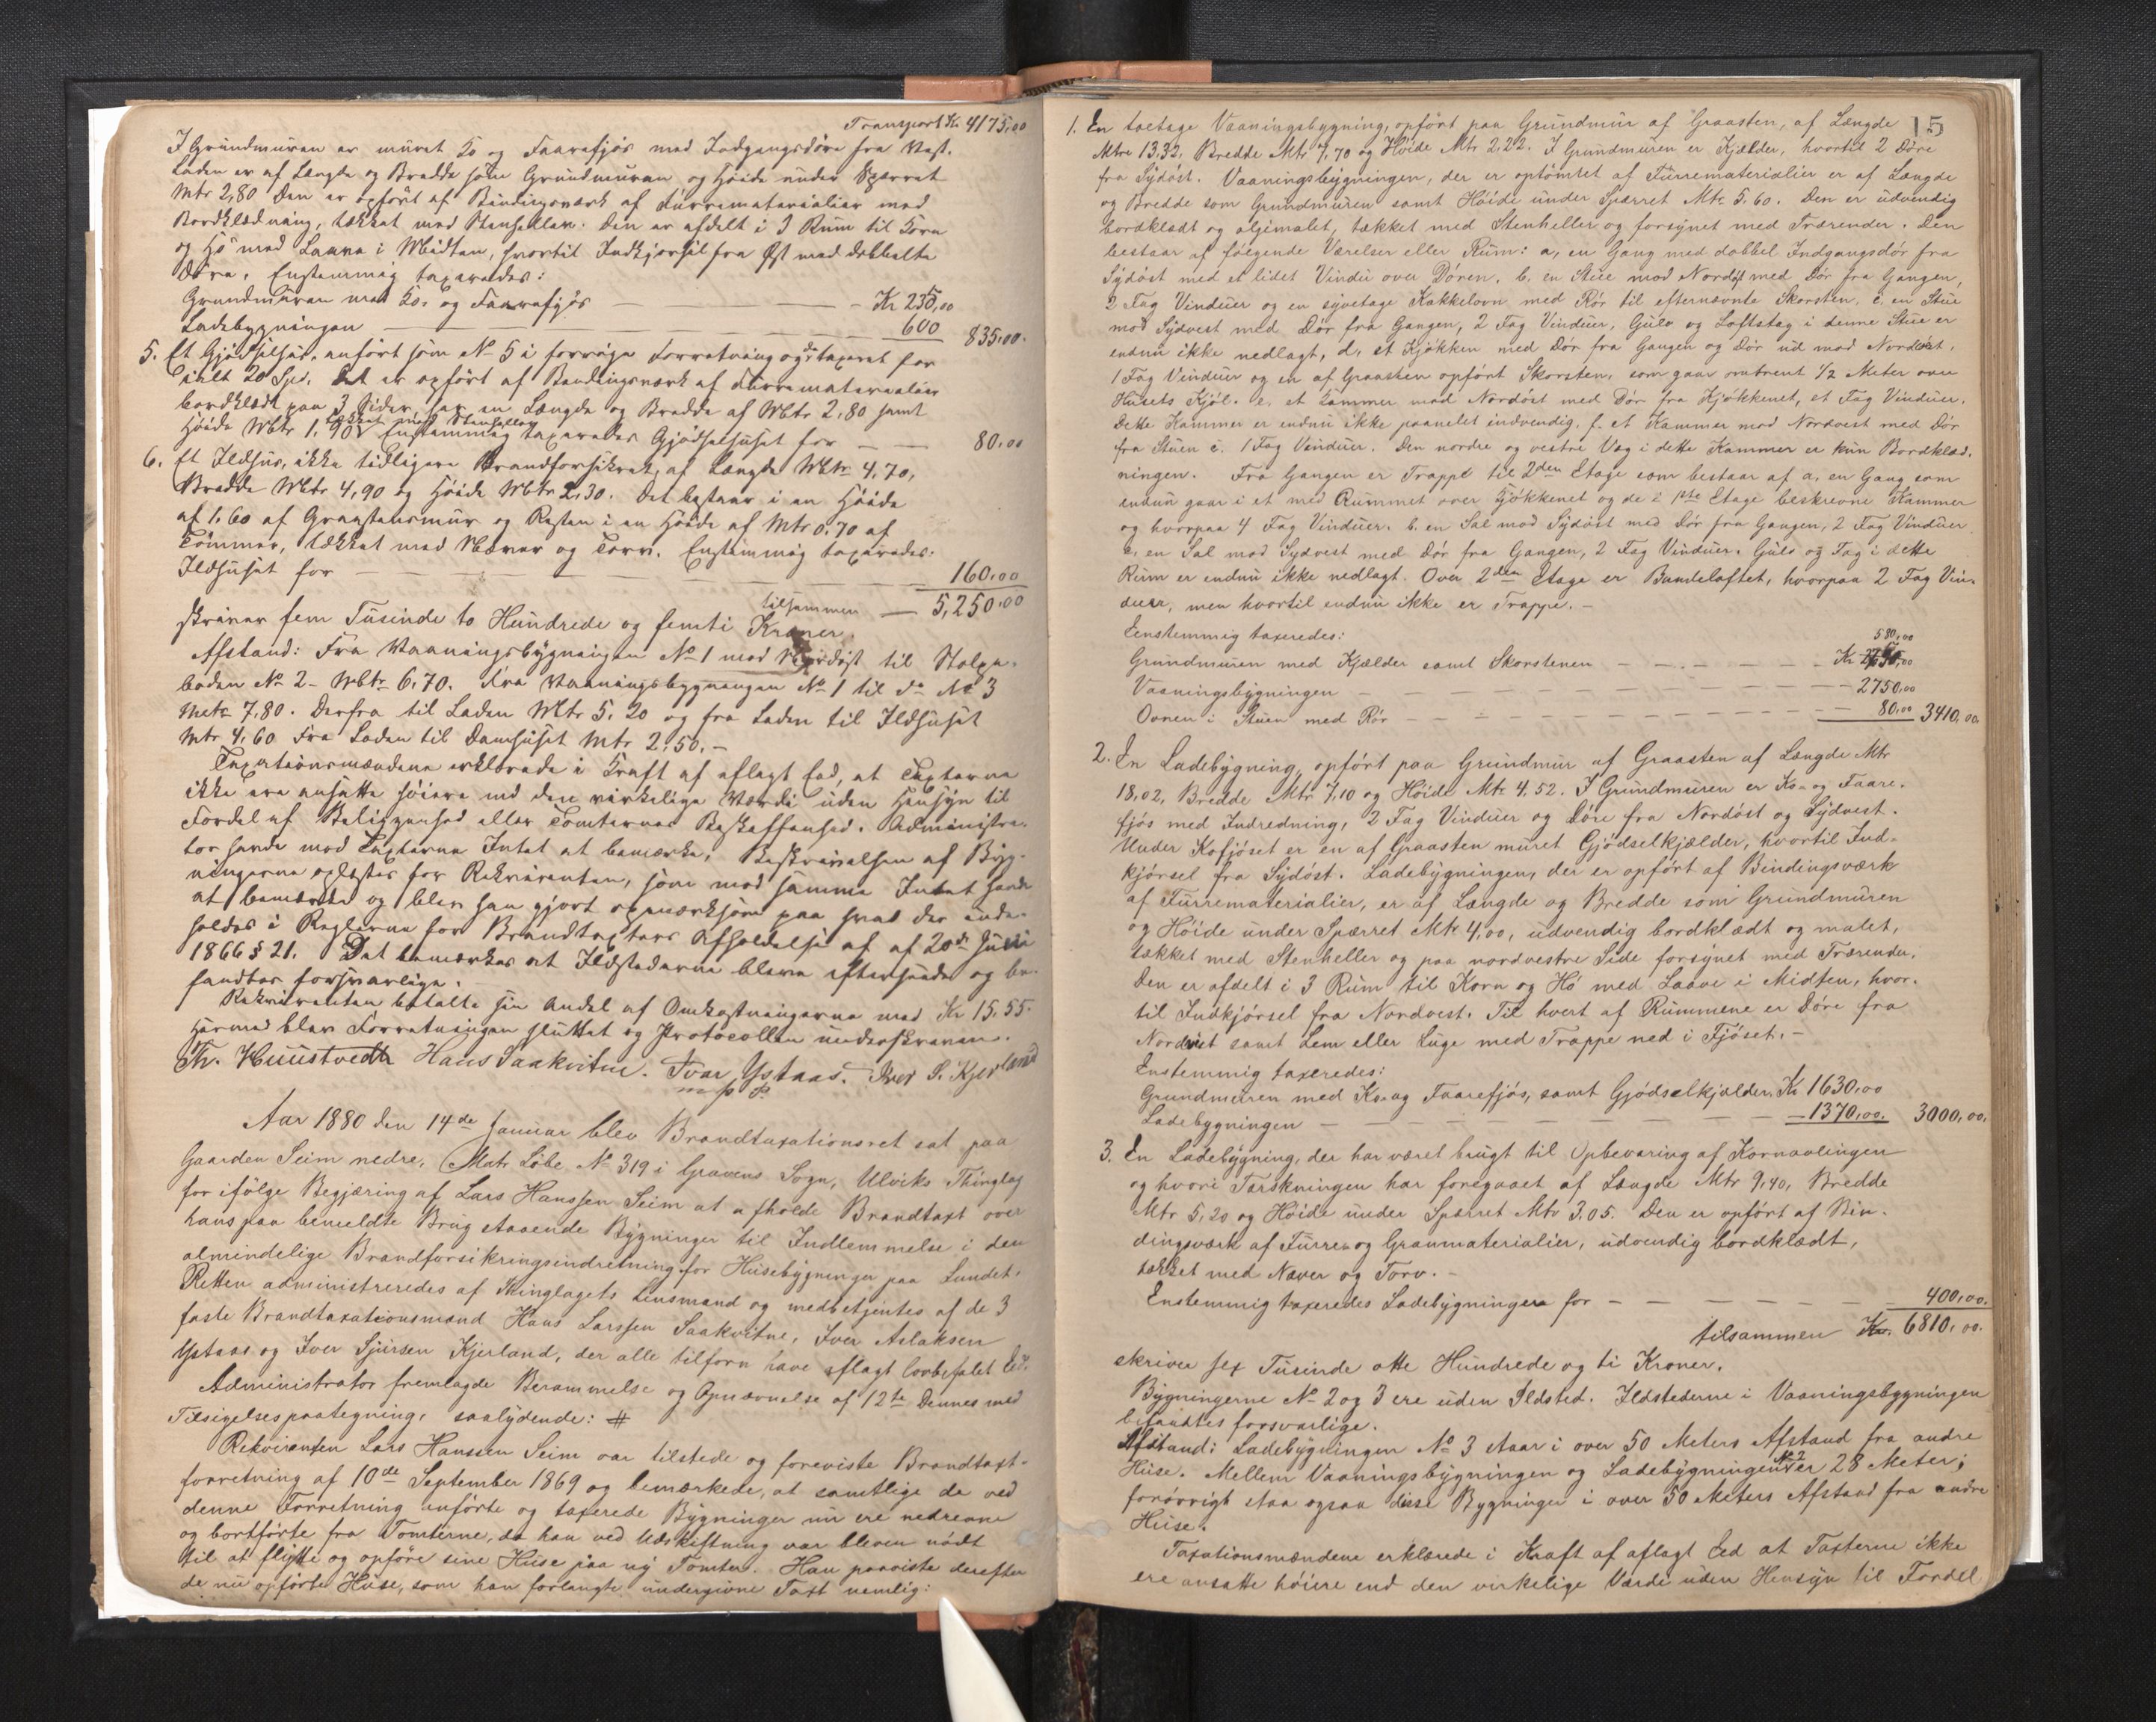 Transport Kr 4175,00
I Grundmuren er muret Ko og Faarefjøs med Indgangsdøre fra Vest.
Laden er af Længde og Bredde som Grundmuren og Høide under Sperret
Mtr 2,80 Den er opført af Bindingsværk af Furrematerialier med
Bordklædning, tækket med Stenheller. Den er afdelt i 3 Rum til Korn
og Hø med Laave i Midten, hvortil Indkjørsel fra Øst med dobbelte
Døre. Enstemmig taxeredes:
Grundmuren med Ko- og Faarefjøs — — Kr 235,00
Ladebygningen — — 600 835,00.
5. Et Gjødselhus, anført som No 5 i forrige Forretning og da taxeret for
ialt 20 Spd. Det er opført af Bindingsværk af Furrematerialier
bordklædt paa 3 Sider, har en Længde og Bredde af Mtr 2,80 samt
Høide Mtr 1,90, tækket med Stenheller. Enstemmig taxeredes Gjødselhuset for — — 80,00
6. Et Ildhus, ikke tidligere Brandforsikret, af Længde Mtr 4,70,
Bredde Mtr 4,90 og Høide Mtr 2,30. Det bestaar i en Høide
af 1,60 af Graastensmur og Resten i en Høide af Mtr 0,70 af
Tømmer, tækket med Næver og Torv. Enstemmig taxeredes
Ildhuset for — — 160,00
tilsammen — 5,250.00
skriver fem Tusinde to Hundrede og femti Kroner.
Afstand: Fra Vaaningsbygningen No 1 mod Nordøst til Stolpe-
boden No 2 - Mtr 6,70. Fra Vaaningsbygningen No 1 til do No 3
Metr 7,80. Derfra til Laden Mtr 5,20 og fra Laden til Ildhuset
Mtr 4,60 Fra Laden til Damhuset Mtr 2,50. —
Taxationsmændene erklærede i Kraft af aflagt Eed, at Taxterne
ikke ere ansatte høiere end den virkelige Værdi uden Hensyn til
Fordel af Beliggenhed eller Tomternes Beskaffenhed. Administra-
tor havde mod Taxterne Intet at bemærke. Beskrivelsen af Byg-
ningerne oplæstes for Rekvirenten, som mod samme Intet havde
at bemærke og blev han gjort opmærksom paa hvad der inde-
holdes i Reglerne for Brandtaxters Afholdelse af 20de Juni
1866 § 21. Det bemærkes at Ildstederne bleve efterseede og be-
fandtes forsvarlige.
Rekvirenten betalte sin Andel af Omkostningerne med Kr 15,55.
Hermed blev Forretningen sluttet og Protocollen underskreven.
Th. Huustvedt Hans Saakvitne. Ivar Ystaas. Iver S. Kjerland
m p P
Aar 1880 den 14de Januar blev Brandtaxationsret sat paa
Gaarden Seim nedre, Matr. Løbe No 319 i Gravens Sogn, Ulviks Thinglag
for ifølge Begjæring af Lars Hanssen Seim at afholde Brandtaxt over
hans paa bemeldte Brug staaende Bygninger til Indlemmelse i den
almindelige Brandforsikringsindretning for Husebygninger paa Landet.
Retten administreredes af Thinglagets Lensmand og medbetjentes af de 3
faste Brandtaxationsmænd Hans Larssen Saakvitne, Iver Aslaksen
Ystaas og Iver Sjursen Kjerland, der alle tilforn have aflagt lovbefalet Eed.
Administrator fremlagde Berammelse og Opnævnelse af 12te Dennes med
Tilsigelsespaategning, saalydende: #
Rekvirenten Lars Hanssen Seim var tilstede og foreviste Brandtaxt-
forretning af 10de September 1869 og bemærkede, at samtlige de ved
denne Forretning anførte og taxerede Bygninger nu ere nedrevne
og bortførte fra Tomterne, da han ved Udskiftning var bleven nødt
til at flytte og opføre sine Huse paa ny Tomter. Han paaviste derefter
de nu opførte Huse, som han forlangte undergivne Taxt nemlig:
15
1. En toetage Vaaningsbygning, opført paa Grundmur af Graasten, af Længde
Mtre 13,32, Bredde Mtr 7,70 og Høide Mtr 2,22. I Grundmuren er Kjælder, hvortil 2 Døre
fra Sydøst. Vaaningsbygningen, der er optømtet af Furrematerialier er af Længde
og Bredde som Grundmuren samt Høide under Sperret Mtr 5,60. Den er udvendig
bordklædt og oljemalet, tækket med Stenheller og forsynet med Trærender. Den
bestaar af følgende Værelser eller Rum: a, en Gang med dobbel Indgangsdør fra
Sydøst med et lidet Vindu over Døren. b. en Stue mod Nordøst med Dør fra Gangen,
2 Fag Vinduer og en syvetage Kakkelovn med Rør til efternævnte Skorsten. c. en Stue
mod Sydvest med Dør fra Gangen, 2 Fag Vinduer, Gulv og Loftstag i denne Stue er
endnu ikke nedlagt, d, et Kjøkken med Dør fra Gangen og Dør ud mod Nordvest,
1 Fag Vinduer og en af Graasten opført Skorsten, som gaar omtrent 1/2 Meter over
Husets Kjøl. e. et Kammer mod Nordøst med Dør fra Kjøkkenet, et Fag Vinduer.
Dette Kammer er endnu ikke paanelet indvendig. f. et Kammer mod Nordvest med Dør
fra Stuen c. 1 Fag Vinduer. Den nordre og vestre Væg i dette Kammer er kun Bordklæd-
ningen. Fra Gangen er Trappe til 2den Etage som bestaar af a, en Gang som
endnu gaar i et med Rummet over Kjøkkenet og de i 1ste Etage beskrevne Kammer
og hvorpaa 4 Fag Vinduer. b. en Sal mod Sydøst med Dør fra Gangen, 2 Fag Vinduer
c. en Sal mod Sydvest med Dør fra Gangen, 2 Fag Vinduer. Gulv og Tag i dette
Rum er endnu ikke nedlagt. Over 2den Etage er Bundeloftet, hvorpaa 2 Fag Vin-
duer, men hvortil endnu ikke er Trappe. —
Eenstemmig taxeredes:
Grundmuren med Kjælder samt Skorstenen — — Kr 580,00
Vaaningsbygningen — — 2750,00
Ovnen i Stuen med Rør — — 80,00 3410,00.
2. En Ladebygning, opført paa Grundmur af Graasten af Længde Mtr
18,02, Bredde Mtr 7,10 og Høide Mtr 4,52. I Grundmuren er Ko- og Faare-
fjøs med Indredning, 2 Fag Vinduer og Døre fra Nordøst og Sydvest.
Under Kofjøset er en af Graasten muret Gjødselkjælder, hvortil Ind-
kjørsel fra Sydøst. Ladebygningen, der er opført af Bindingsværk
af Furrematerialier, er af Længde og Bredde som Grundmuren
og Høide under Sperret Mtr 4,00, udvendig bordklædt og malet,
tækket med Stenheller og paa nordvestre Side forsynet med Trærender.
Den er afdelt i 3 Rum til Korn og Hø med Laave i Midten, hvor-
til Indkjørsel fra Nordvest. Til hvert af Rummene er Døre fra
Nordvest samt Lem eller Luge med Trappe ned i Fjøset. —
Enstemmig taxeredes:
Grundmuren med Ko- og Faarefjøs, samt Gjødselkjælder. Kr 1630,00
Ladebygningen — — 1370,00. 3000,00.
3. En Ladebygning, der har været brugt til Opbevaring af Kornavlingen
og hvori Tærskningen har foregaaet af Længde Mtr 9,40, Bredde
Mtr 5,20 og Høide under Sperret Mtr 3,05. Den er opført af Bin-
dingsværk af Furre- og Granmaterialier, udvendig bordklædt,
tækket med Næver og Torv. —
Enstemmig taxeredes Ladebygningen for — — 400,00.
tilsammen Kr. 6810,00.
skriver sex Tusinde otte Hundrede og ti Kroner.
Bygningerne No 2 og 3 ere uden Ildsted. Ildstederne i Vaaningsbygningen
befandtes forsvarlige.
Afstand: Ladebygningen No 3 staar i over 50 Meters Afstand fra andre
Huse. Mellem Vaaningsbygningen og Ladebygningen No 2 er 28 Meter;
forøvrigt staa ogsaa disse Bygninger i over 50 Meters Afstand fra andre
Huse.
Taxationsmændene erklærede i Kraft af aflagt Eed at Taxterne ikke
ere ansatte høiere end den virkelige Værdi uden Hensyn til Fordel